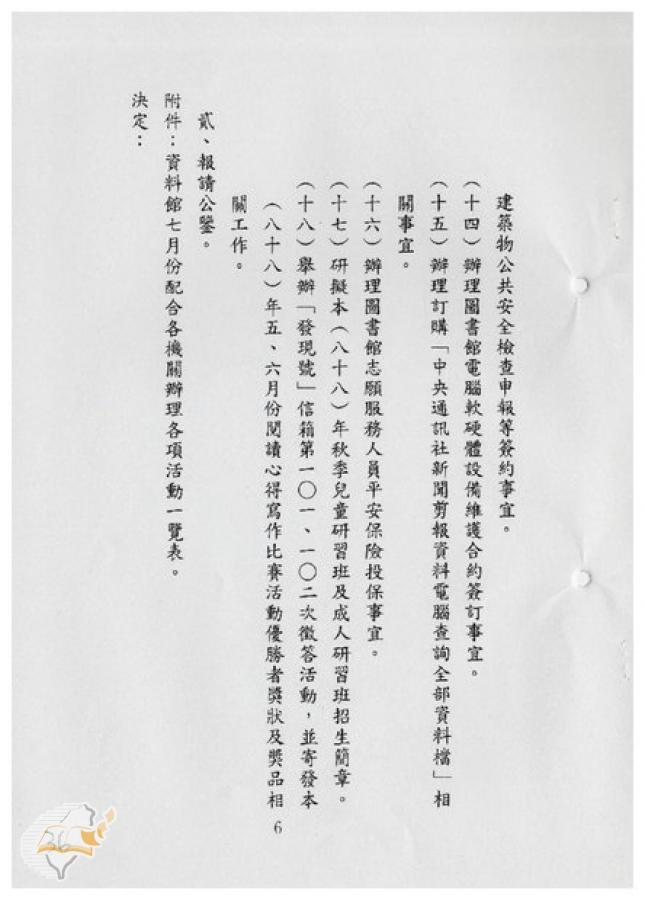 建築物公共安全檢查申報等簽約事宜。
(十四)辦理圖書館電腦軟硬體設備維護合約簽訂事宜。
(十五)辦理訂購「中央通訊社新聞剪報資料電腦查詢全部資料檔」相
關事宜。
(十六)辦理圖書館志願服務人員平安保險投保事宜。
(十七)研擬本(八十八)年秋季兒童研習班及成人研習班招生簡章。
(十八)舉辦「發現號」信箱第一〇一、一〇二次徵答活動,並寄發本
(八十八)年五、六月份閱讀心得寫作比賽活動優勝者獎狀及獎品相
關工作。
貳、報請公鑒。
附件:資料館七月份配合各機關辦理各項活動一覽表。
決定:
6